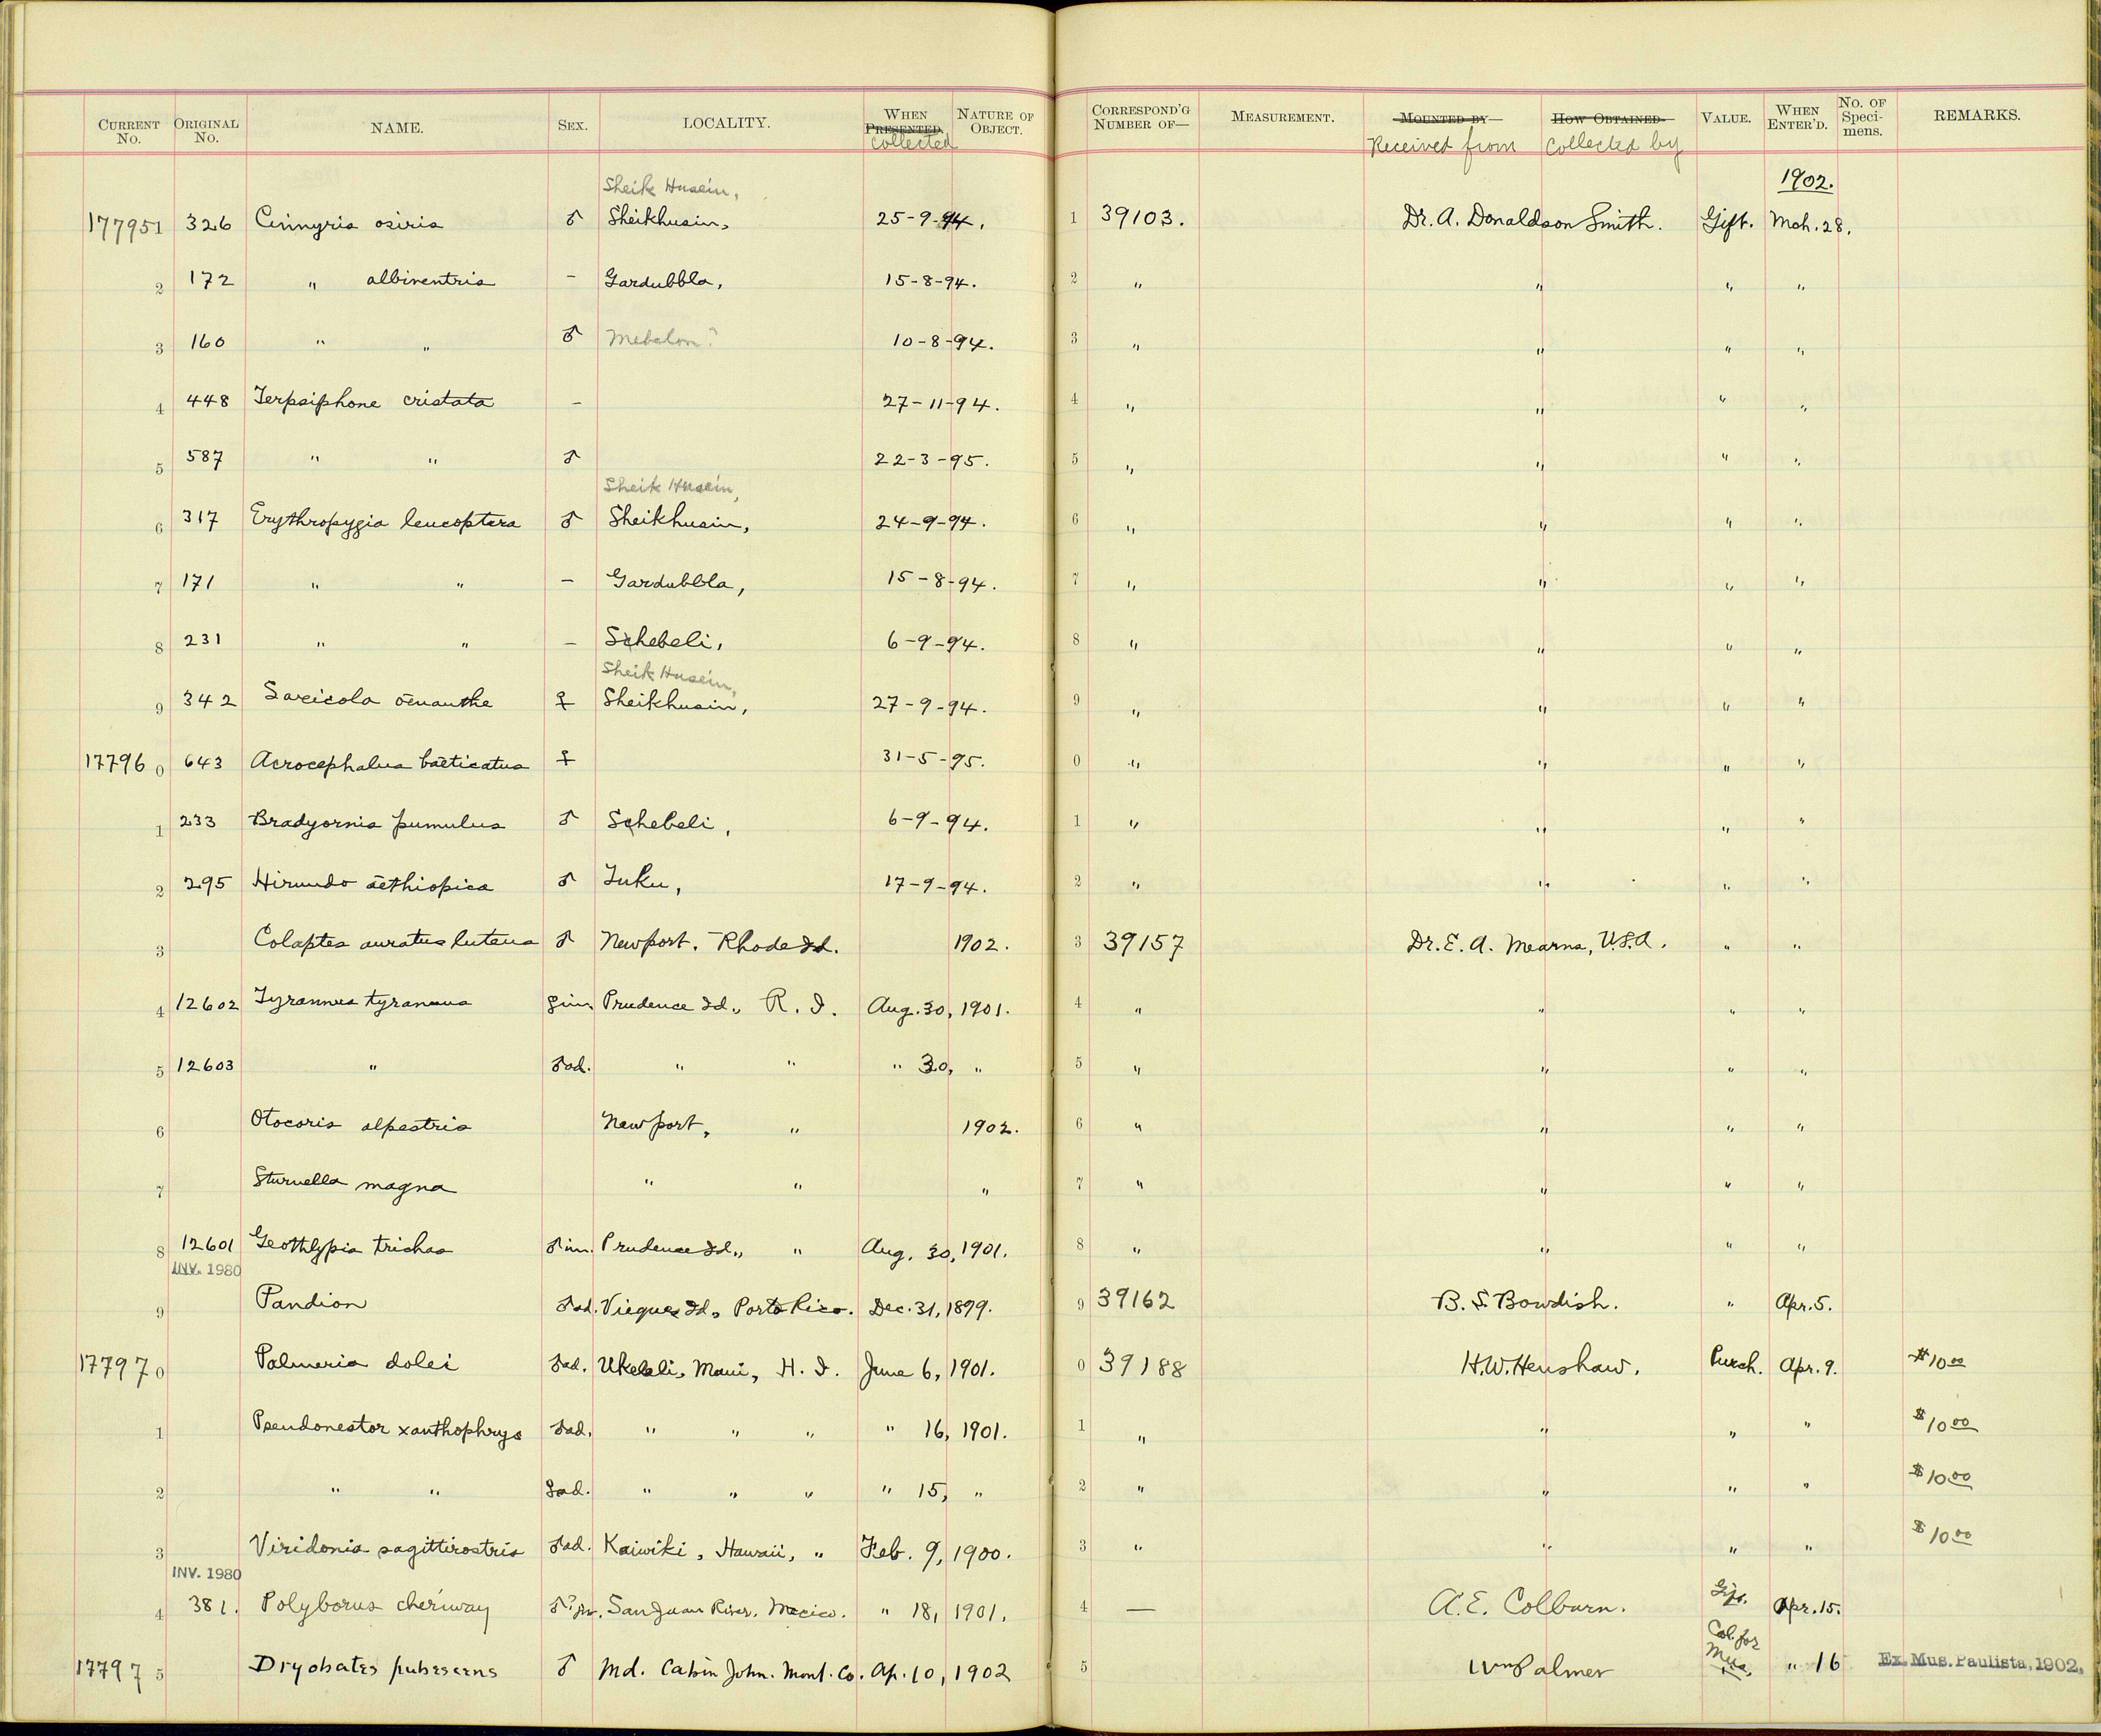 CURRENT No. ORIGINAL No. NAME. SEX. LOCALITY. WHEN PRESENTED collected NATURE OF OBJECT. CORRESPOND'G NUMBER OF— MEASUREMENT. MOUNTED BY— Received from HOW OBTAINED Collected by VALUE. WHEN ENTER'D. No. OF Speci- mens. REMARKS.
1902.
Sheik Husein,
177951 326 Cinnyris osiris ♂ Sheikhusin, 25-9-94. 1 39103. Dr. A. Donaldson Smith. Gift. Mch. 28.
2 172 " albiventris – Gardubbla, 15-8-94. 2 " " " "
3 160 " " ♂ Mebalon? 10-8-94. 3 " " " "
4 448 Terpsiphone cristata – 27-11-94. 4 " " " "
5 587 " " ♂ 22-3-95. 5 " " " "
Sheik Husein,
6 317 Erythropygia leucoptera ♂ Sheikhusin, 24-9-94. 6 " " " "
7 171 " " – Gardubbla, 15-8-94. 7 " " " "
8 231 " " – Schebeli, 6-9-94. 8 " " " "
Sheik Husein,
9 342 Saxicola œnanthe ♀ Sheikhusin, 27-9-94. 9 " " " "
177960 643 Acrocephalus bæticatus ♀ 31-5-95. 0 " " " "
1 233 Bradyornis pumulus ♂ Schebeli, 6-9-94. 1 " " " "
2 295 Hirundo æthiopica ♂ Tuku, 17-9-94. 2 " " " "
3 Colaptes auratus luteus ♂ Newport, Rhode Id. 1902. 3 39157 Dr. E. A. Mearns, U.S.A. " "
4 12602 Tyrannus tyrannus ♀im. Prudence Id., R. I. Aug. 30, 1901. 4 " " " "
5 12603 " ♂ad. " " " 30, " 5 " " " "
6 Otocoris alpestris Newport, " 1902. 6 " " " "
7 Sturnella magna " " " 7 " " " "
8 12601 Geothlypis trichas ♂im. Prudence Id., " Aug. 30, 1901. 8 " " " "
INV. 1980
9 Pandion ♂ad. Vieques Id., Porto Rico. Dec. 31, 1899. 9 39162 B. S. Bowdish. " Apr. 5.
177970 Palmeria dolei ♂ad. Ukeleli, Maui, H. I. June 6, 1901. 0 39188 H.W. Henshaw. Purch. Apr. 9. $10 00
1 Pseudonestor xanthophrys ♂ad. " " " " 16, 1901. 1 " " " " $10 00
2 " " ♀ad. " " " " 15, " 2 " " " " $10 00
3 Viridonia sagittirostris ♂ad. Kaiwiki, Hawaii, " Feb. 9, 1900. 3 " " " " $10 00
INV. 1980
4 381. Polyborus cheriway ♂? San Juan River, Mexico. " 18, 1901. 4 — A. E. Colburn. Apr. 15.
177975 Dryobates pubescens ♂ Md. Cabin John. Mont. Co. Ap. 10, 1902 5 Wm Palmer Col. for Mus. " 16 Ex. Mus. Paulista, 1902.